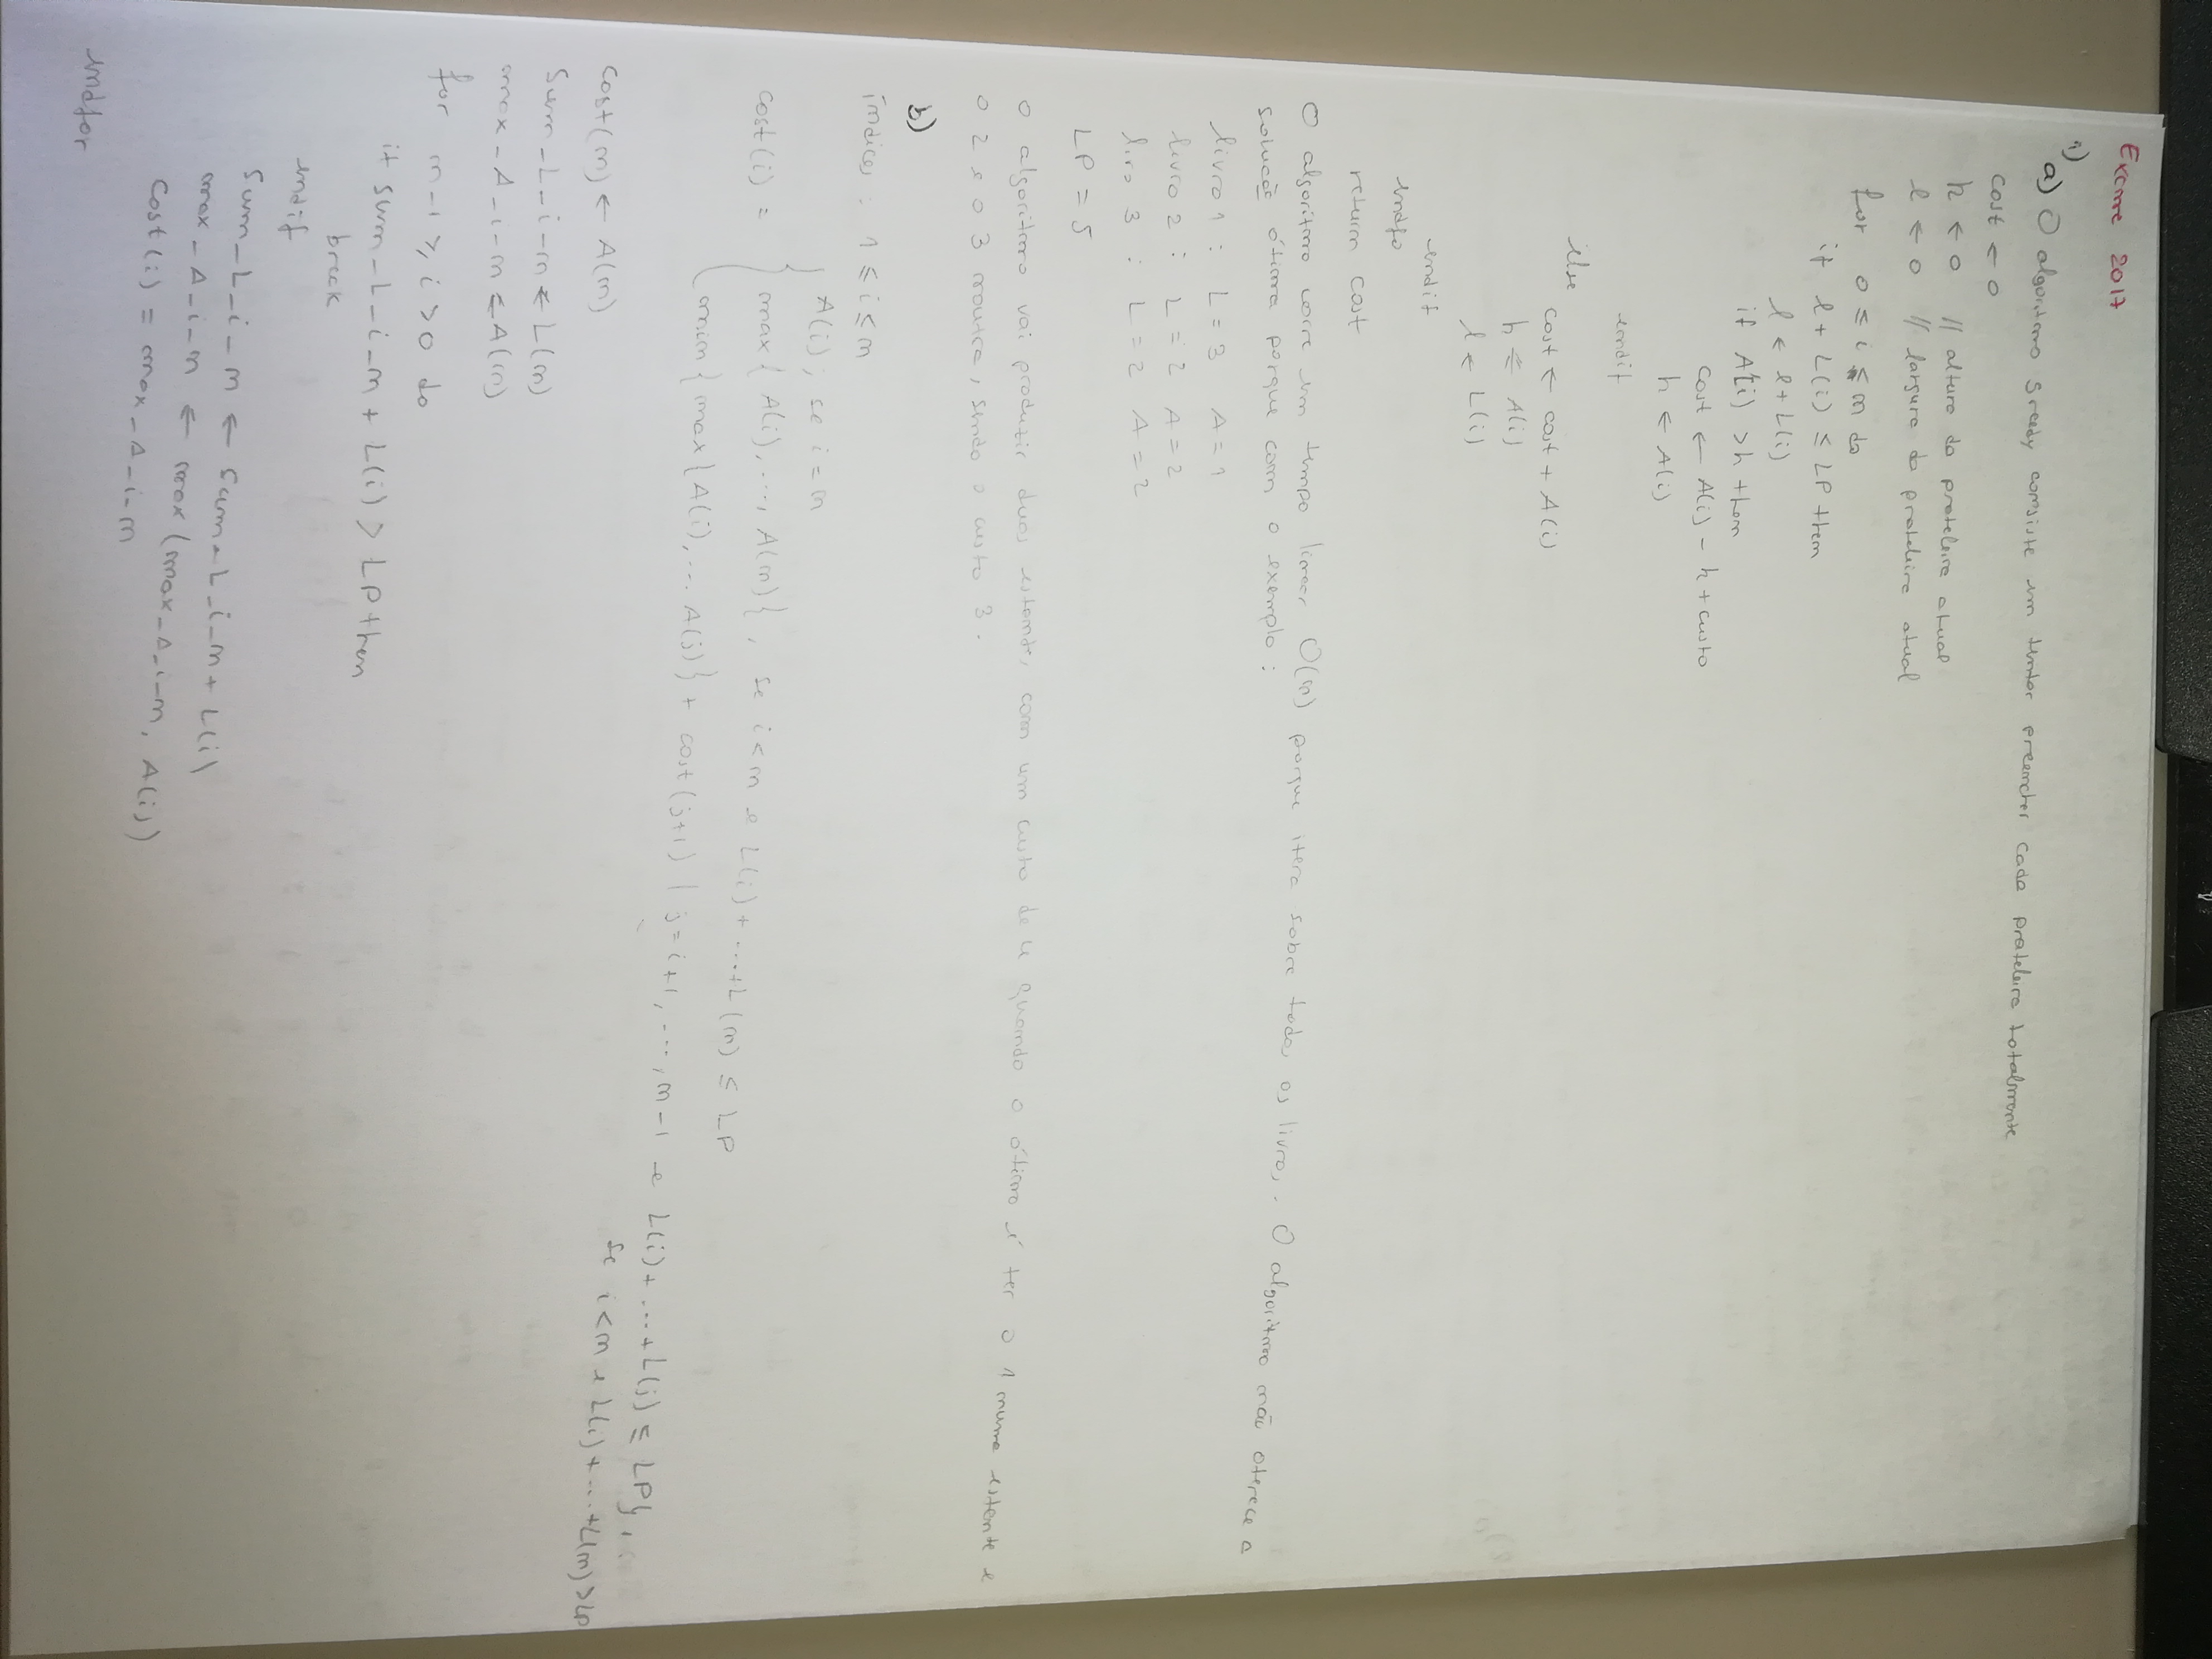 Exame 2017
1)
a) O algoritmo greedy consiste em tentar preencher cada prateleira totalmente
cost ← 0
h ← 0 // altura da prateleira atual
l ← 0 // largura da prateleira atual
for 0 ≤ i ≤ n do
if l + L(i) ≤ LP then
l ← l + L(i)
if A(i) > h then
cost ← A(i) - h + custo
h ← A(i)
endif
else
cost ← cost + A(i)
h ← A(i)
l ← L(i)
endif
endfo
return cost
O algoritmo corre em tempo linear O(n) porque itera sobre todos os livros. O algoritmo não oferece a
solução ótima porque com o exemplo:
livro 1 : L = 3 A = 1
livro 2 : L = 2 A = 2
livro 3 : L = 2 A = 2
LP = 5
O algoritmo vai produzir duas estantes, com um custo de 4 quando o ótimo é ter o 1 numa estante e
o 2 e o 3 noutra, sendo o custo 3.
b)
índices : 1 ≤ i ≤ n
cost(i) = { A(i), se i = n
max{ A(i), ..., A(n) }, se i < n e L(i) + ... + L(n) ≤ LP
min{ max{A(i), ... A(j)} + cost(j+1) | j = i+1, ..., n-1 e L(i) + ... + L(j) ≤ LP},
se i < n e L(i) + ... + L(n) > LP
cost(n) ← A(n)
sum_L_i_n ← L(n)
max_A_i_n ← A(n)
for n-1 ≥ i > 0 do
if sum_L_i_n + L(i) > LP then
break
endif
sum_L_i_n ← sum_L_i_n + L(i)
max_A_i_n ← max(max_A_i_n, A(i))
cost(i) = max_A_i_n
endfor